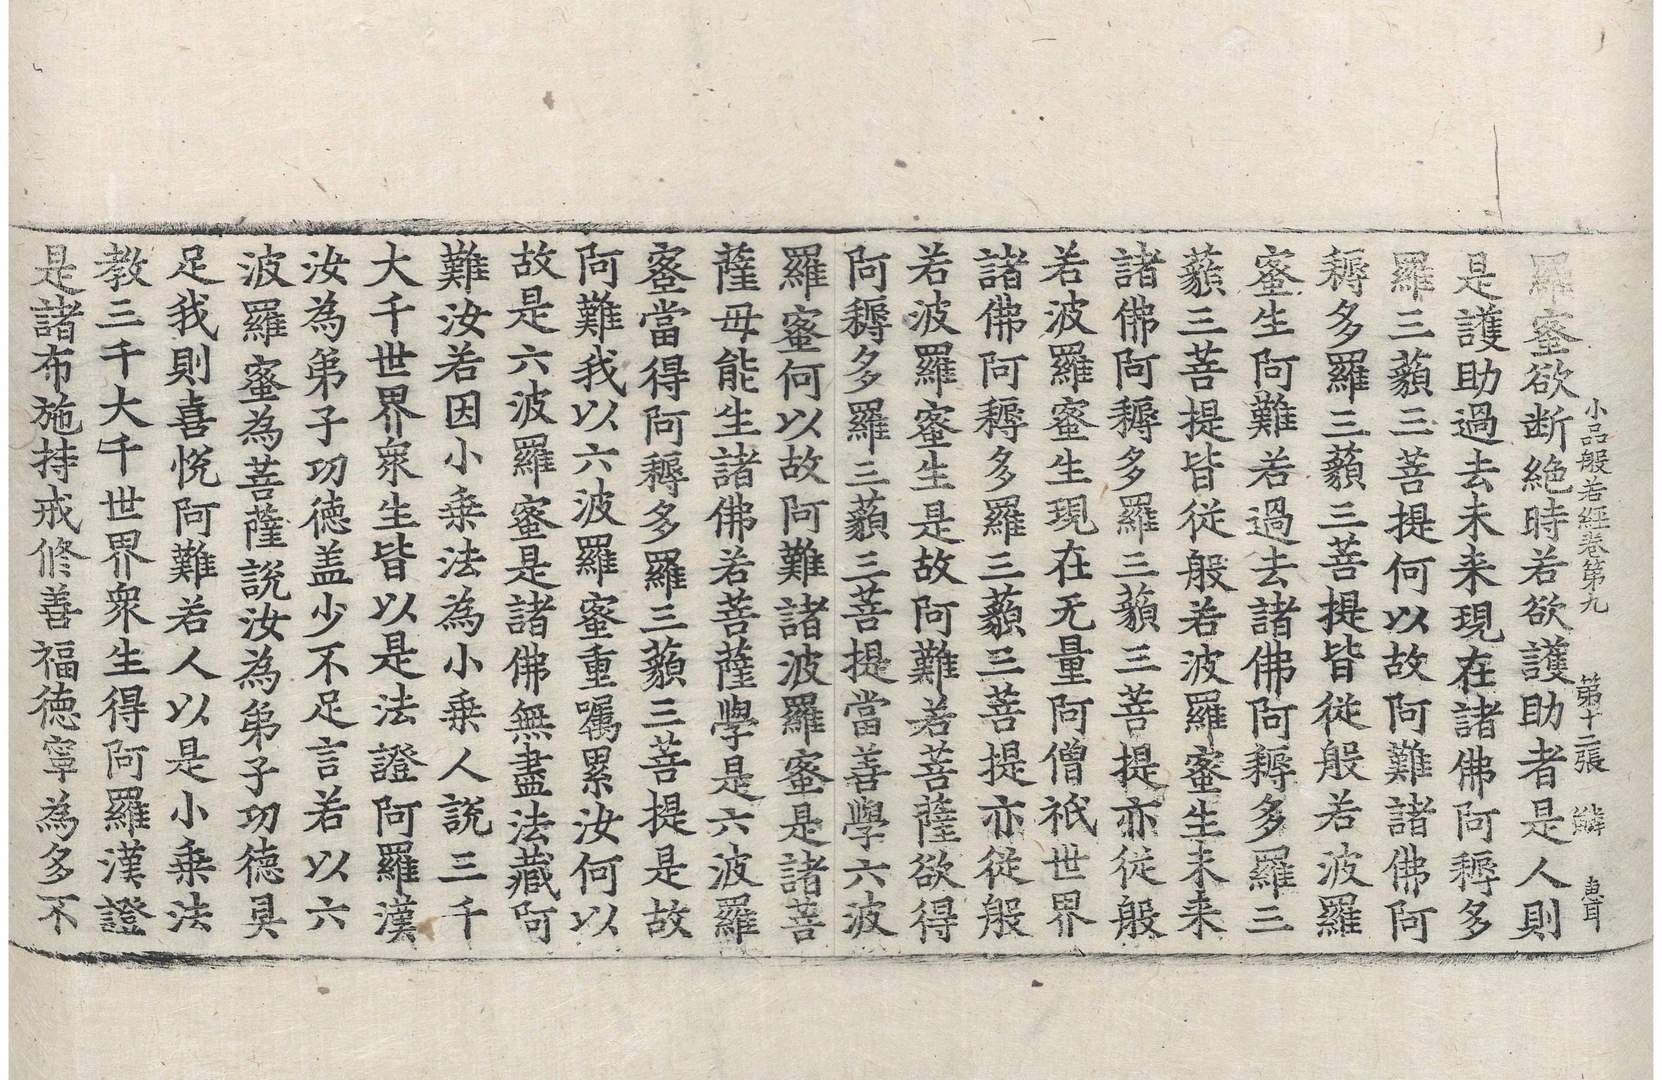 小品般若經卷第九　第十二張　鱗
羅蜜欲断絶時若欲護助者是人則
是護助過去未来現在諸佛阿耨多
羅三藐三菩提何以故阿難諸佛阿
耨多羅三藐三菩提皆從般若波羅
蜜生阿難若過去諸佛阿耨多羅三
藐三菩提皆從般若波羅蜜生未来
諸佛阿耨多羅三藐三菩提亦從般
若波羅蜜生現在无量阿僧祇世界
諸佛阿耨多羅三藐三菩提亦從般
若波羅蜜生是故阿難若菩薩欲得
阿耨多羅三藐三菩提當善學六波
羅蜜何以故阿難諸波羅蜜是諸菩
薩母能生諸佛若菩薩學是六波羅
蜜當得阿耨多羅三藐三菩提是故
阿難我以六波羅蜜重囑累汝何以
故是六波羅蜜是諸佛無盡法藏阿
難汝若因小乗法為小乗人說三千
大千世界衆生皆以是法證阿羅漢
汝為弟子功德盖少不足言若以六
波羅蜜為菩薩說汝為弟子功德具
足我則喜悅阿難若人以是小乗法
教三千大千世界衆生得阿羅漢證
是諸布施持戒修善福德寧為多不